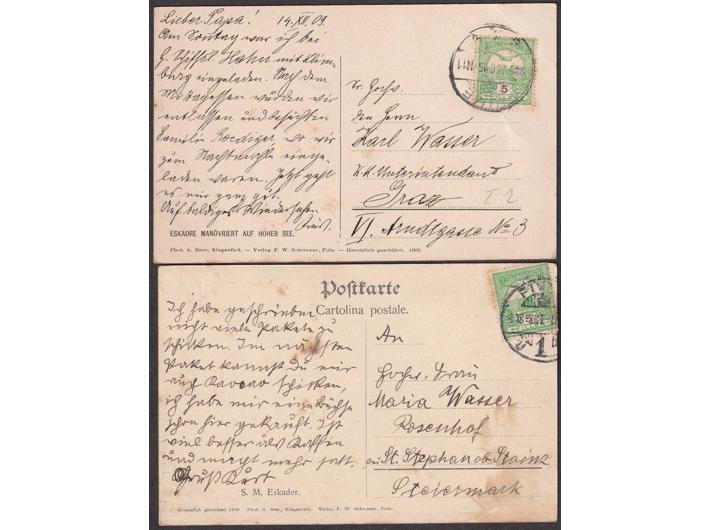 Lieber Papa! 14.XII.09.
Am Sonntag war ich bei
G. Schiffsl. Hahn mit Klim-
burg eingeladen. Nach dem
Mittagessen wurden wir
entlassen und besuchten
Familie Roediger, wo wir
zum Nachtmahle einge-
laden waren. Jetzt geht
es mir ganz gut.
Auf baldiges Wiedersehen
ESKADRE MANÖVRIERT AUF HOHER SEE.
Phot. A. Beer, Klagenfurt. — Verlag F. W. Schrinner, Pola. — Gesetzlich geschützt. 1902.
5
Sr. Hochw.
den Herrn
Karl Wasser
K.K. Unterintendant
Graz
VI. Arndtgasse No 3
Postkarte
Cartolina postale.
Ich habe geschrieben
nicht viele Pakete zu
schicken. Im nächsten
Paket kannst Du mir
auch Kakao schicken,
ich habe mir eine Büchse
schon hier gekauft. Ist
viel besser als Kaffee
und macht mehr satt.
Gruß Kurt
S. M. Eskader.
Gesetzlich geschützt 1908 Phot. A. Beer, Klagenfurt. Verlg. F. W. Schrinner, Pola.
An
Hochw. Frau
Maria Wasser
Rosenhof
St. Stephan ob Stainz
Steiermark